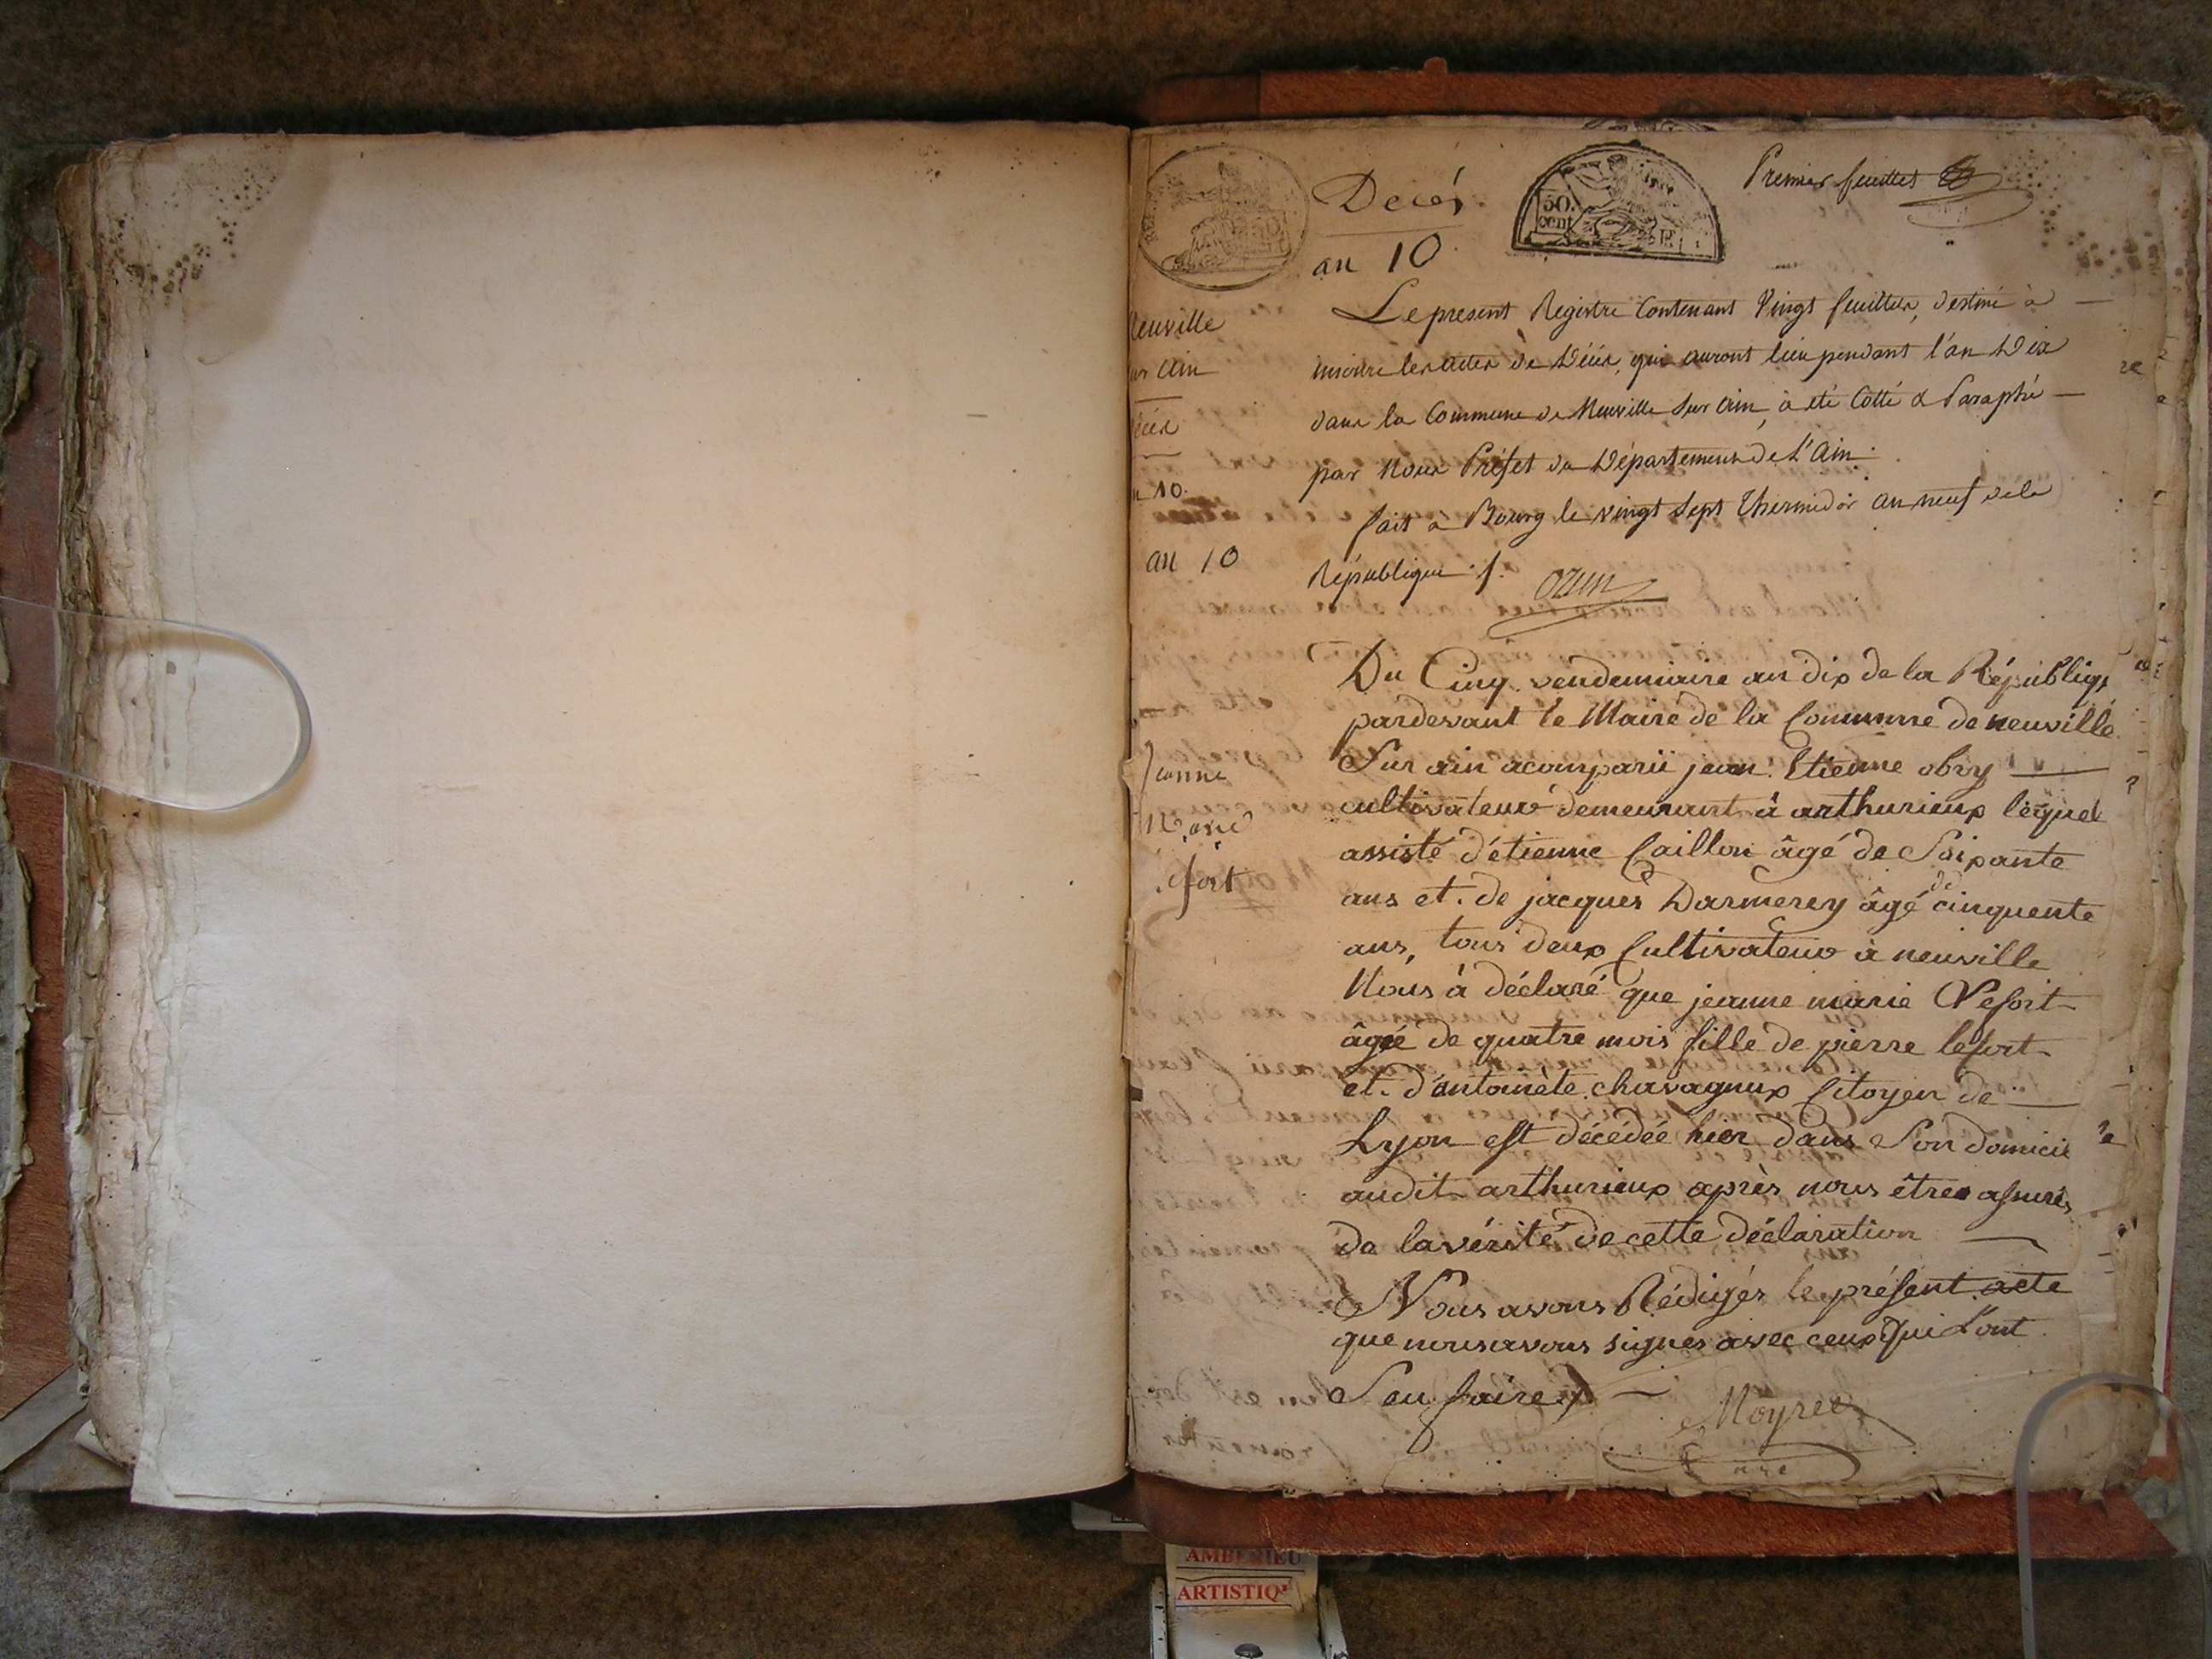 Premier feuillet
Décés
50.
cent
an 10
Neuville
sur Ain
Décès
an 10.
an 10
Le present Registre Contenant Vingt feuillets, destiné à
inscrire les actes de Décès, qui auront lieu pendant l'an Dix
dans la Commune de Neuville sur Ain, à été Cotté & Paraphé
par Nous Préfet du Département de L'Ain.
fait à Bourg le vingt sept Thermidor an neuf de la
République ./. ozun
Du Cinq vendemiaire an dix de la Républiq,
pardevant le Maire de la Commune de neuville
Sur ain acomparü jean Etienne obry
cultivateur demeurant à arthurieux lequel
assisté d'étienne Caillon âgé de Soixante
ans et de jacques Darmerey âgé de cinquente
ans, tous deux Cultivateur à neuville
Nous à déclaré que jeanne marie Lefort
âgée de quatre mois fille de pierre lefort
et d'antoinète chavagnux Citoyen de
Lyon est décédée hier dans Son domicil
audit arthurieux après nous être assurés
de la vérité de cette déclaration
Nous avons Rédigés le présent acte
que nous avons signés avec ceux Qui L'ont
Seu faire
Moyret
Jeanne
Marie
Lefort
AMBERIEU
ARTISTIQ